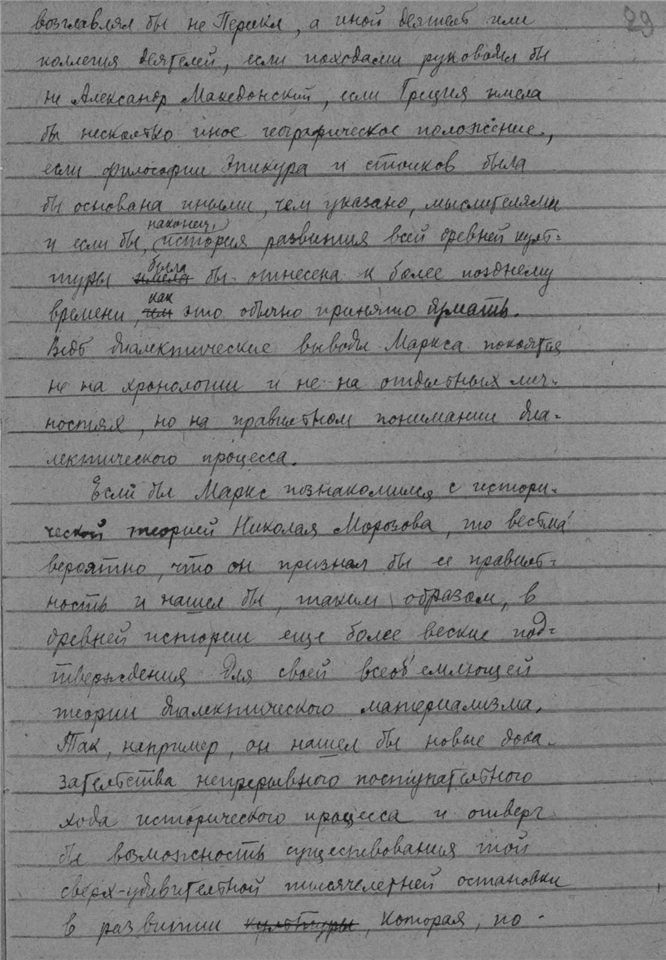 29
возглавлял бы не Перикл, а иной деятель или
коллегия деятелей, если походами руководил бы
не Александр Македонский, если Греция имела
бы несколько иное географическое положение,
если философии Эпикура и стоиков была
бы основана иными, чем указано, мыслителями
и если бы, наконец, история развития всей древней куль-
туры была бы отнесена к более позднему
времени, как это обычно принято думать.
Ведь диалектические выводы Маркса покоятся
не на хронологии и не на отдельных лич-
ностях, но на правильном понимании диа-
лектического процесса.
Если бы Маркс познакомился с истори-
ческой теорией Николая Морозова, то весьма
вероятно, что он признал бы ее правиль-
ность и нашел бы, таким образом, в
древней истории еще более веские под-
тверждения для своей всеоб'емлющей
теории диалектического материализма.
Так, например, он нашел бы новые дока-
зательства непрерывного поступательного
хода исторического процесса и отверг
бы возможность существования той
сверх-удивительной тысячелетней остановки
в развитии культуры, которая, по-